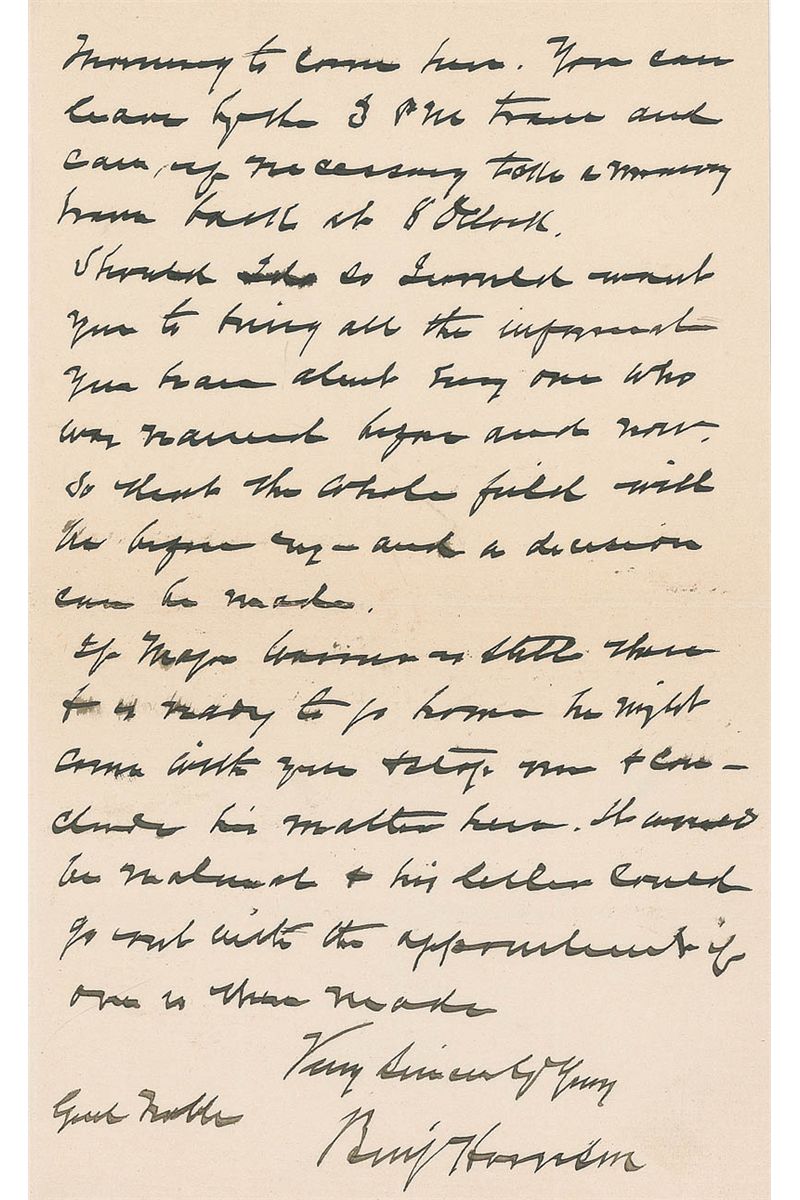 Morning to come here. You can
leave by the 3 PM train and
can, if necessary take a morning
train back at 8 O'Clock.
Should I do so I would want
you to bring all the informat
you have about every one who
was named before and now.
So that the whole field will
be before us — and a decision
can be made.
If Major Warner is still there
& is ready to go home he might
come with you & stop & con-
clude his matter here. It would
be natural & his letter could
go out with the appointment if
one is then made
Very Sincerely Yours
Genl Noble
Benj Harrison